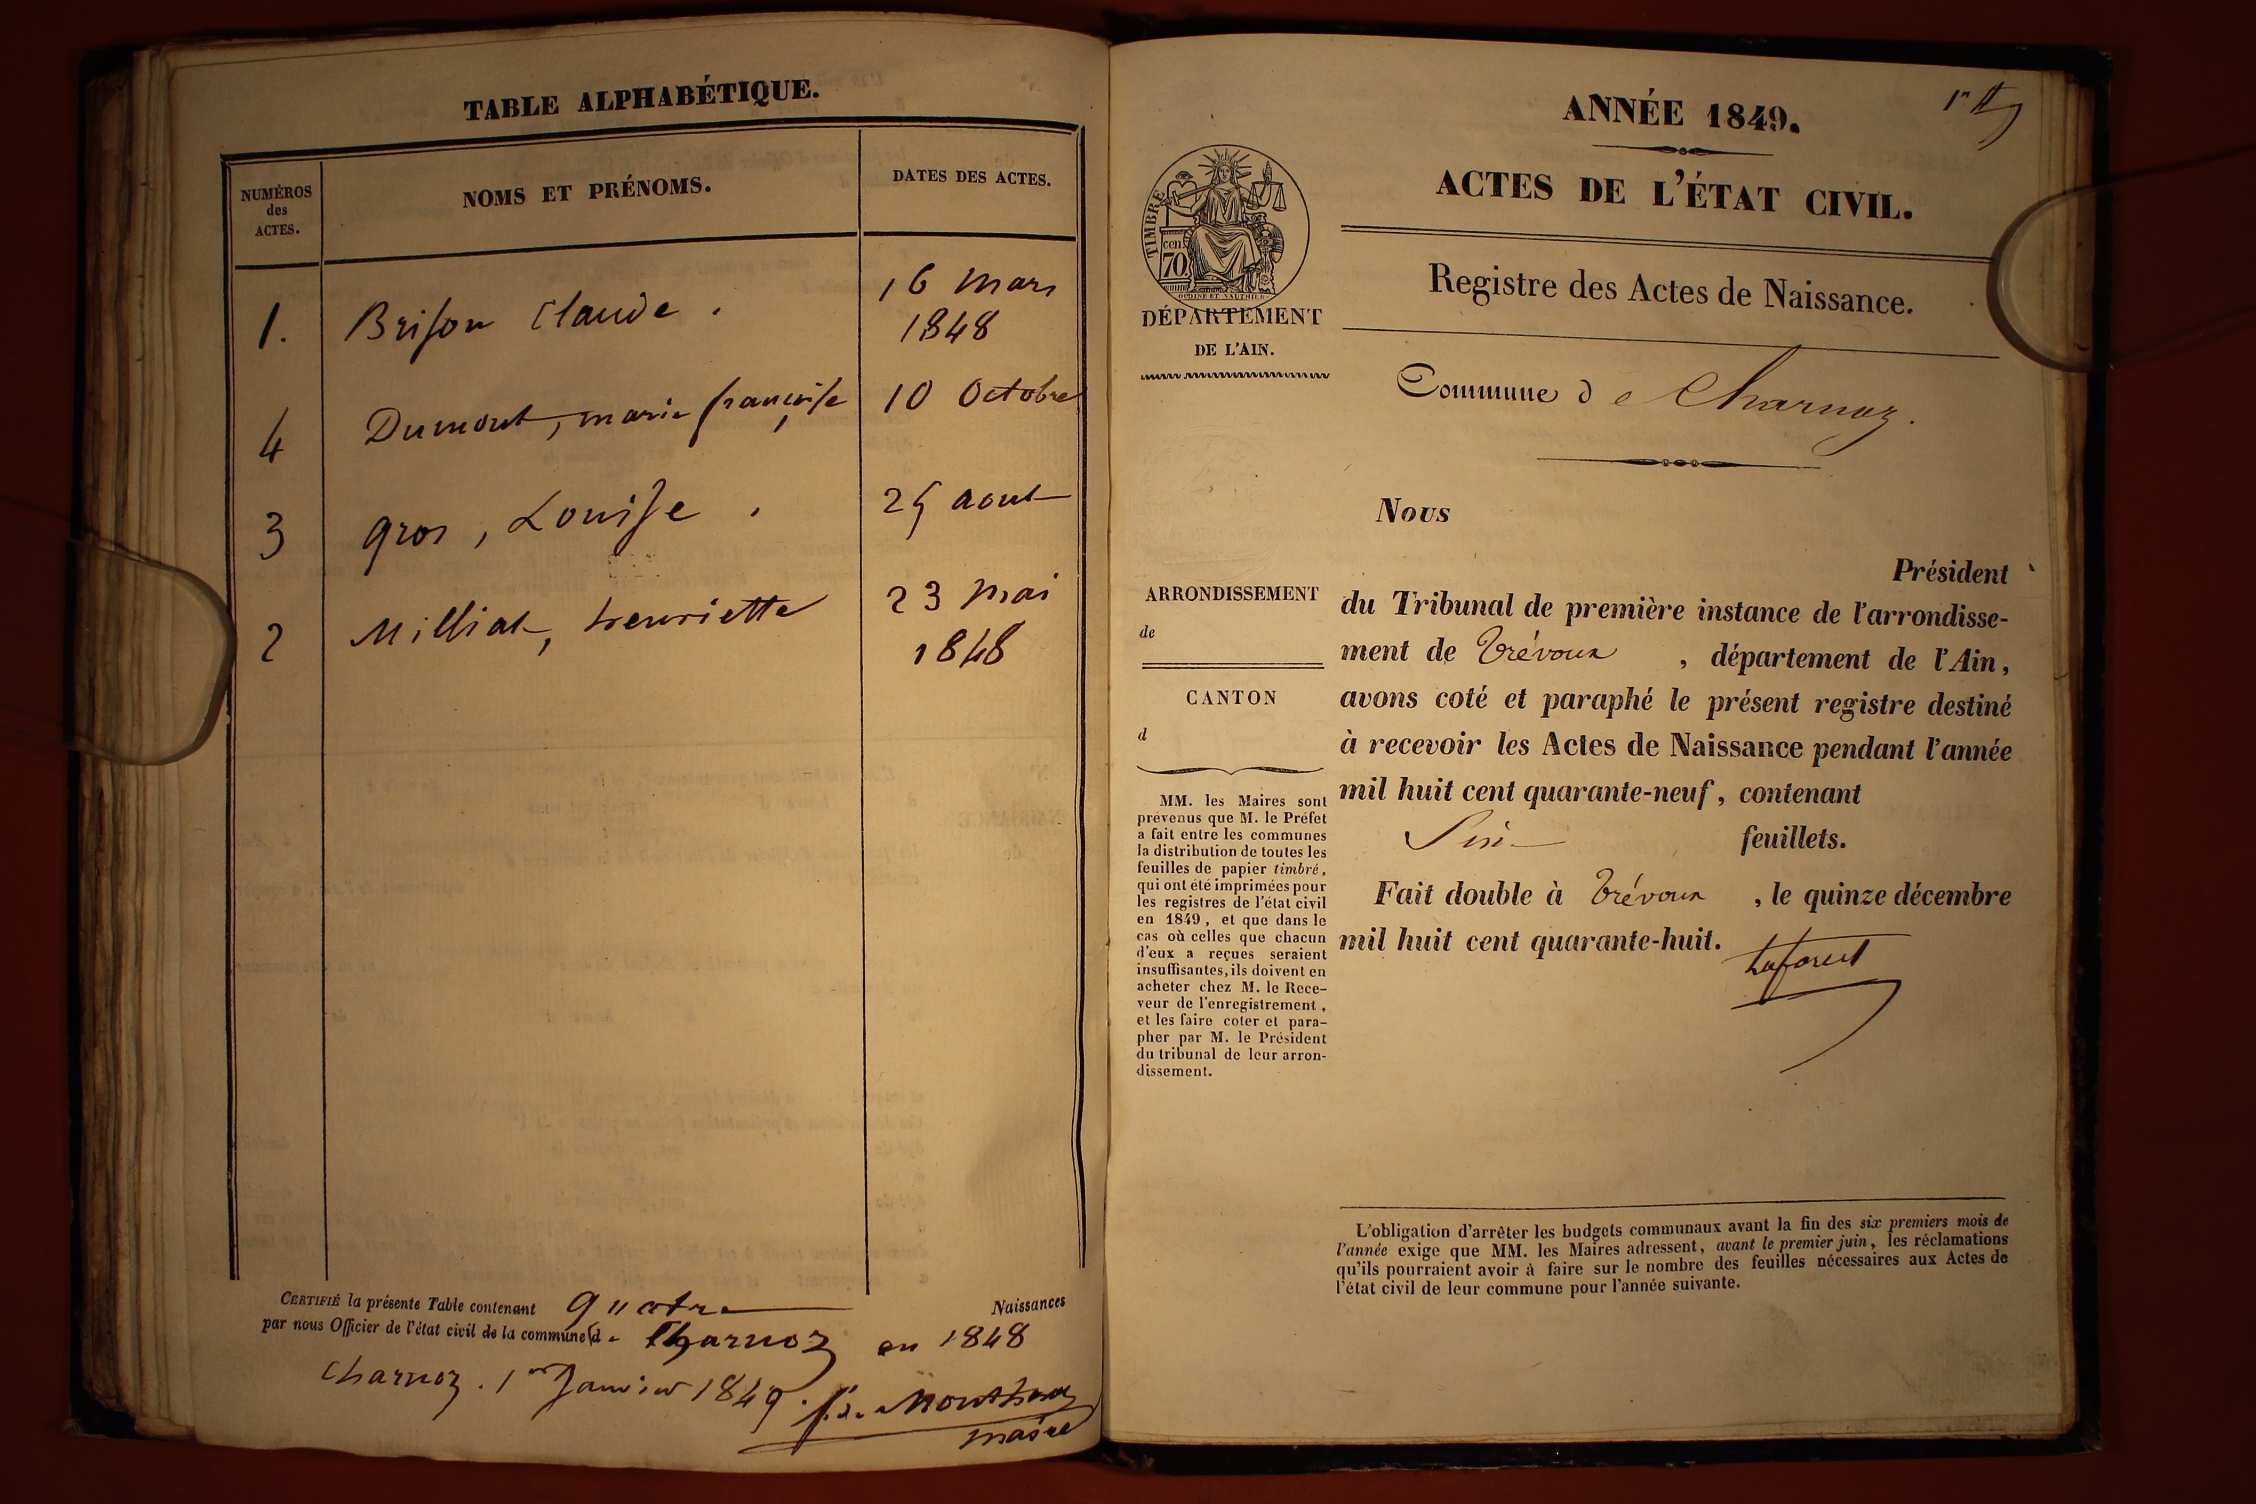 TABLE ALPHABÉTIQUE.
NUMÉROS
des
ACTES.
NOMS ET PRÉNOMS.
DATES DES ACTES.
1. Brison Claude. 16 mars
1848
4 Dumont, marie françoise 10 Octobre
3 gros, Louise. 25 aout
2 Milliat, henriette 23 mai
1848
CERTIFIÉ la présente Table contenant quatre Naissances
par nous Officier de l'état civil de la commune d e Charnoz en 1848
Charnoz. 1er Janvier 1849.
maire
ANNÉE 1849.
ACTES DE L'ÉTAT CIVIL.
Registre des Actes de Naissance.
Commune d e Charnoz.
TIMBRE
70 cen
OUDINE ET VAUTHIER
DÉPARTEMENT
DE L'AIN.
ARRONDISSEMENT
de
CANTON
d
MM. les Maires sont
prévenus que M. le Préfet
a fait entre les communes
la distribution de toutes les
feuilles de papier timbré,
qui ont été imprimées pour
les registres de l'état civil
en 1849, et que dans le
cas où celles que chacun
d'eux a reçues seraient
insuffisantes, ils doivent en
acheter chez M. le Rece-
veur de l'enregistrement,
et les faire coter et para-
pher par M. le Président
du tribunal de leur arron-
dissement.
Nous
Président
du Tribunal de première instance de l'arrondisse-
ment de Trévoux, département de l'Ain,
avons coté et paraphé le présent registre destiné
à recevoir les Actes de Naissance pendant l'année
mil huit cent quarante-neuf, contenant
Six feuillets.
Fait double à Trévoux, le quinze décembre
mil huit cent quarante-huit.
Laforest
L'obligation d'arrêter les budgets communaux avant la fin des six premiers mois de
l'année exige que MM. les Maires adressent, avant le premier juin, les réclamations
qu'ils pourraient avoir à faire sur le nombre des feuilles nécessaires aux Actes de
l'état civil de leur commune pour l'année suivante.